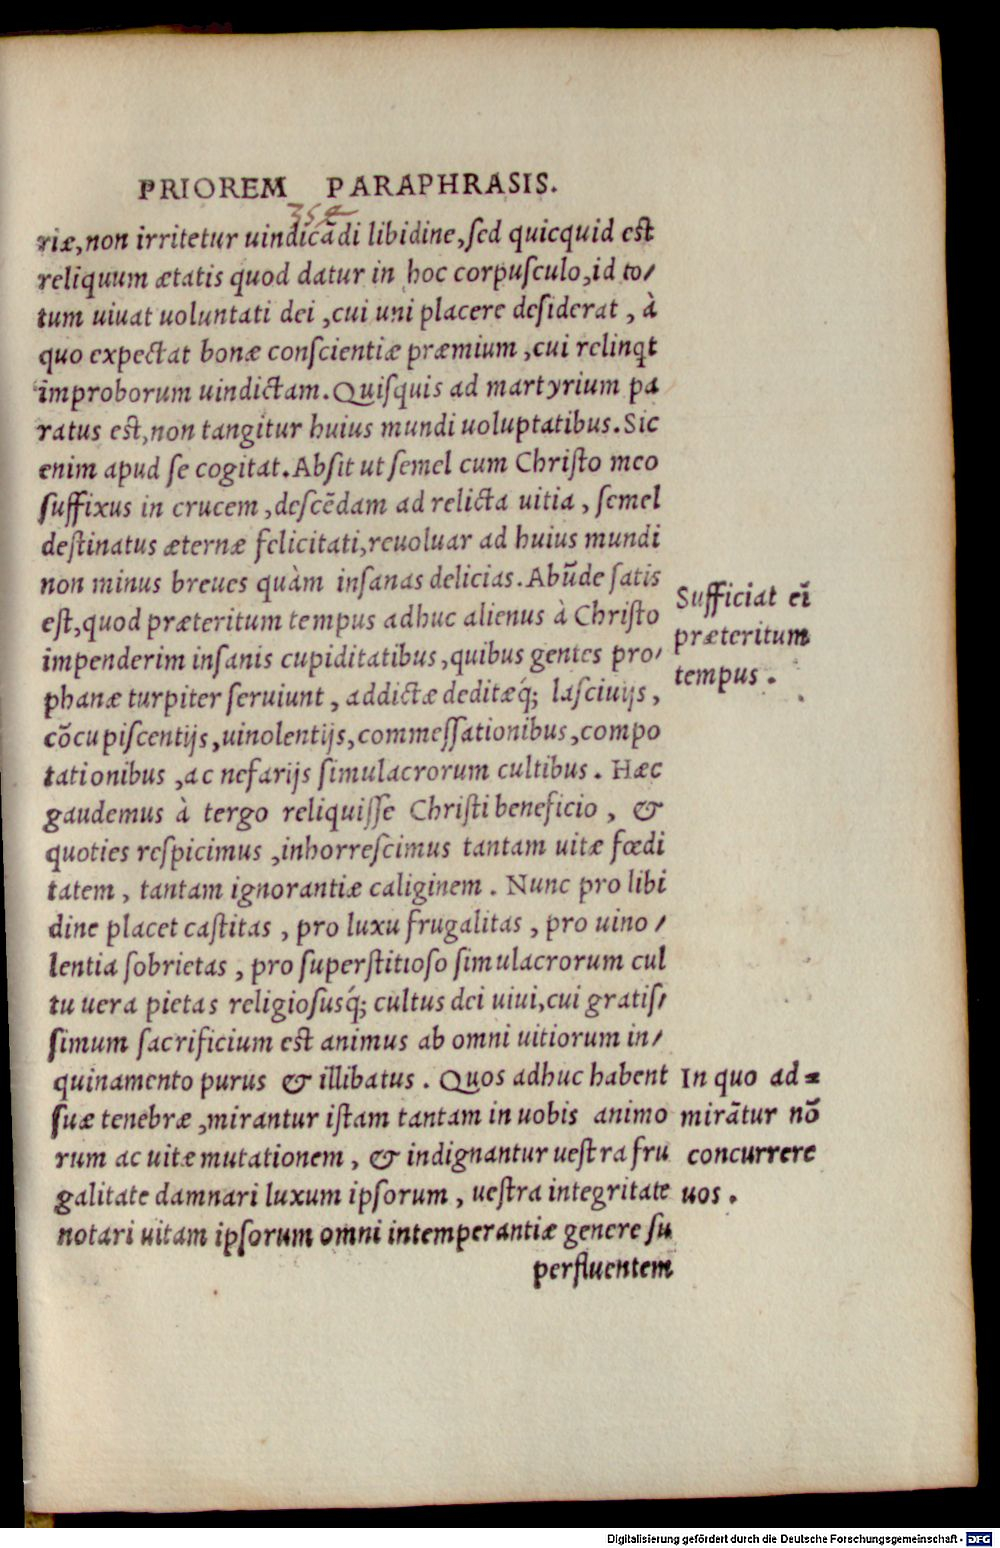 PRIOREM PARAPHRASIS.
riæ, non irritetur uindicãdi libidine, sed quicquid est
reliquum ætatis quod datur in hoc corpusculo, id to/
tum uiuat uoluntati dei, cui uni placere desiderat, à
quo expectat bonæ conscientiæ præmium, cui relinqt
improborum uindictam. Quisquis ad martyrium pa
ratus est, non tangitur huius mundi uoluptatibus. Sic
enim apud se cogitat. Absit ut semel cum Christo meo
suffixus in crucem, descẽdam ad relicta uitia, semel
destinatus æternæ felicitati, reuoluar ad huius mundi
non minus breues quàm insanas delicias. Abũde satis
est, quod præteritum tempus adhuc alienus à Christo
impenderim insanis cupiditatibus, quibus gentes pro/
phanæ turpiter seruiunt, addictæ deditæq́; lasciuijs,
cõcupiscentijs, uinolentijs, commessationibus, compo
tationibus, ac nefarijs simulacrorum cultibus. Hæc
gaudemus à tergo reliquisse Christi beneficio, &
quoties respicimus, inhorrescimus tantam uitæ fœdi
tatem, tantam ignorantiæ caliginem. Nunc pro libi
dine placet castitas, pro luxu frugalitas, pro uino/
lentia sobrietas, pro superstitioso simulacrorum cul
tu uera pietas religiosusq́; cultus dei uiui, cui gratis/
simum sacrificium est animus ab omni uitiorum in/
quinamento purus & illibatus. Quos adhuc habent
suæ tenebræ, mirantur istam tantam in uobis animo
rum ac uitæ mutationem, & indignantur uestra fru
galitate damnari luxum ipsorum, uestra integritate
notari uitam ipsorum omni intemperantiæ genere su
perfluentem
Sufficiat eĩ
præteritum
tempus.
In quo ad=
mirãtur nõ
concurrere
uos.
Digitalisierung gefördert durch die Deutsche Forschungsgemeinschaft - DFG